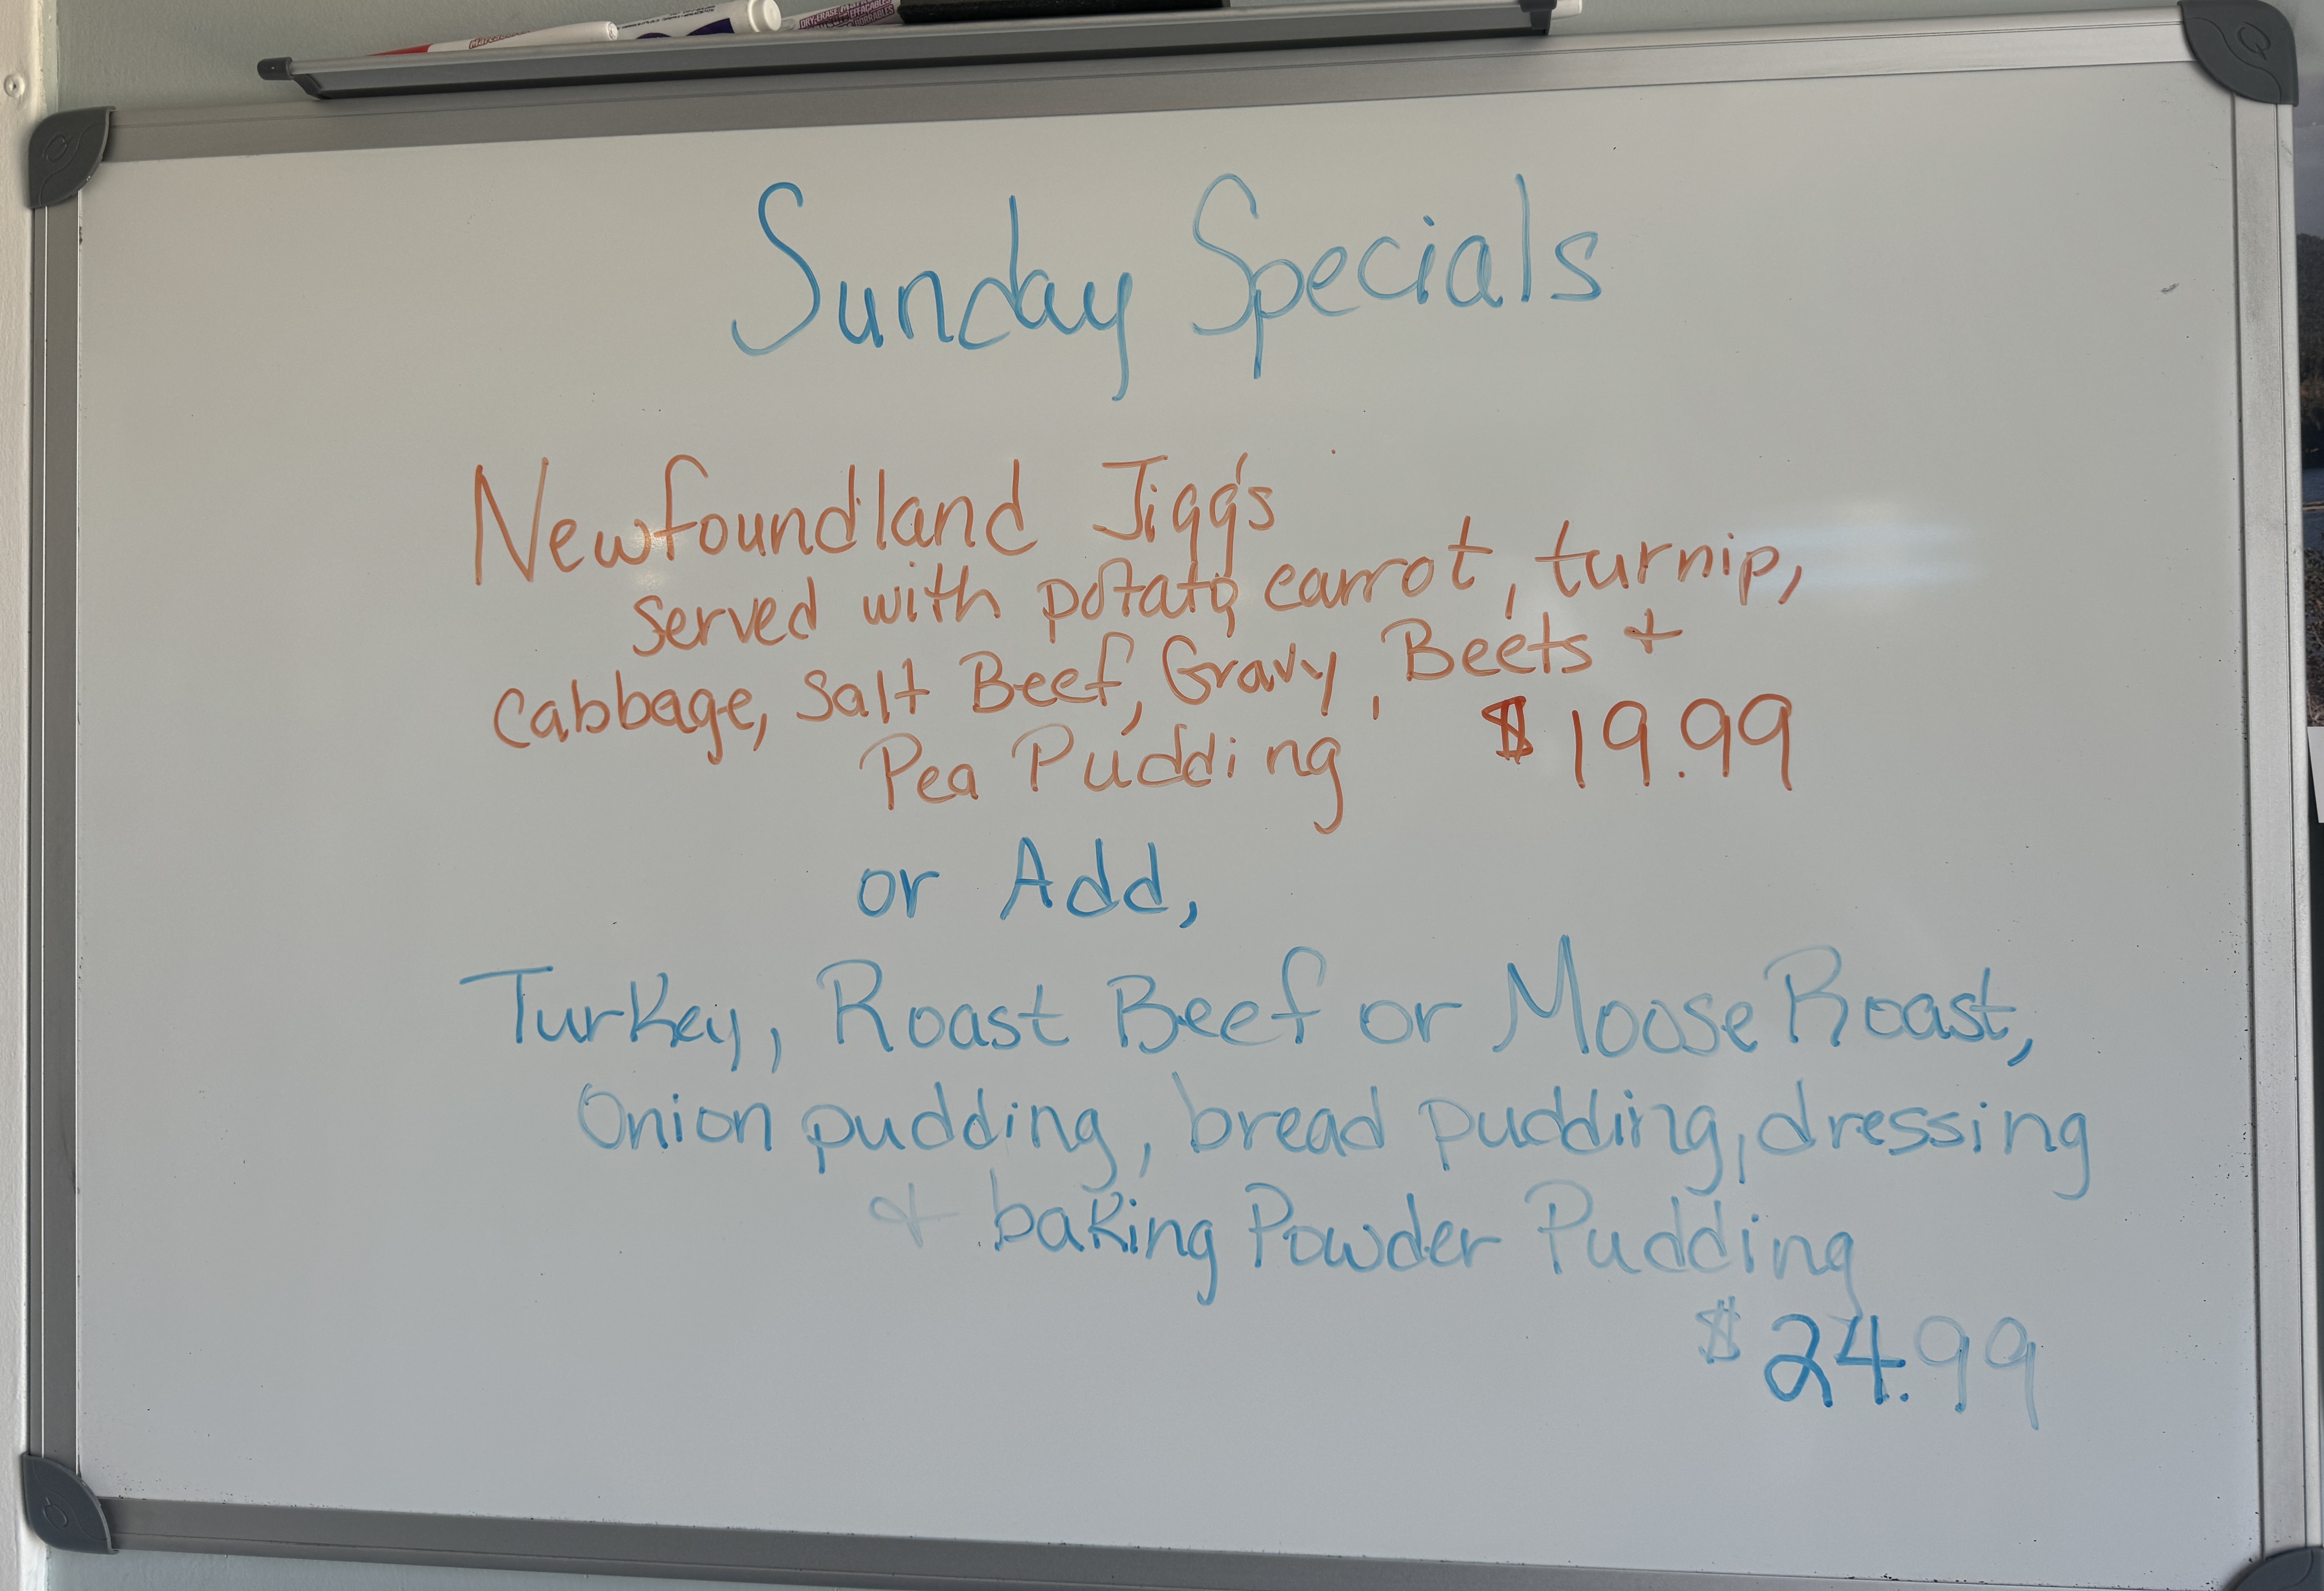 DRY-ERASE MA
EFFAÇABLES
ORRABLES
Sunday Specials
Newfoundland Jigg's
served with potato, carrot, turnip,
Cabbage, Salt Beef, Gravy, Beets +
Pea Pudding $19.99
or Add,
Turkey, Roast Beef or Moose Roast,
Onion pudding, bread pudding, dressing
+ baking Powder Pudding
$24.99